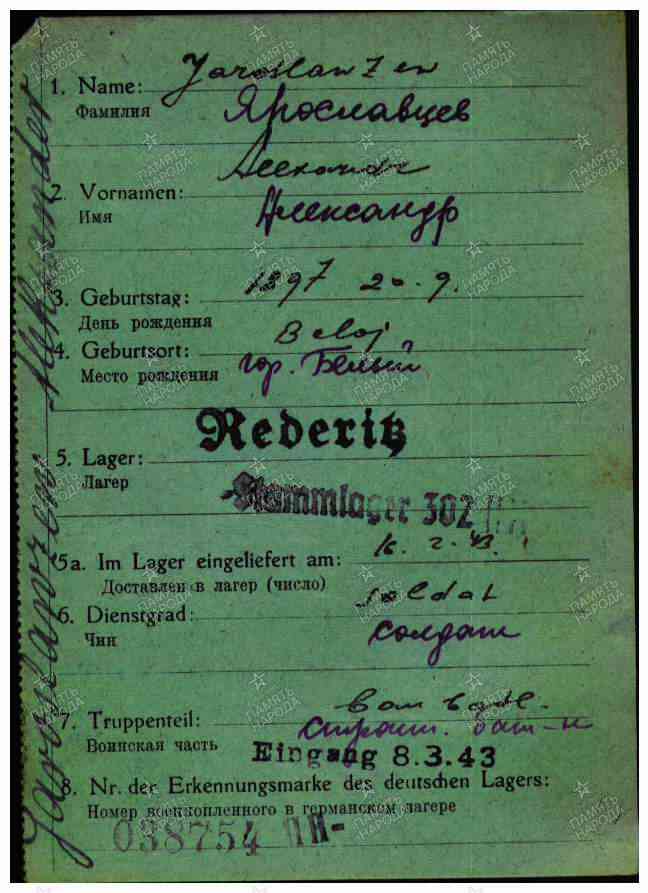 1. Name:
Фамилия
Ярославцев
Alexandr
2. Vornamen:
Имя
Александр
3. Geburtstag: 1897 20. 9.
День рождения
Beloj
4. Geburtsort:
Место рождения
гор. Белый
Rederitz
5. Lager:
Лагерь
Stammlager 302
16. 2. 43.
5a. Im Lager eingeliefert am:
Доставлен в лагерь (число)
Soldat
6. Dienstgrad:
Чин
солдат
7. Truppenteil:
Воинская часть
строит. бат-н
Eingang 8.3.43
8. Nr. der Erkennungsmarke des deutschen Lagers:
Номер военнопленного в германском лагере
038754
Alexander
ПАМЯТЬ
НАРОДА